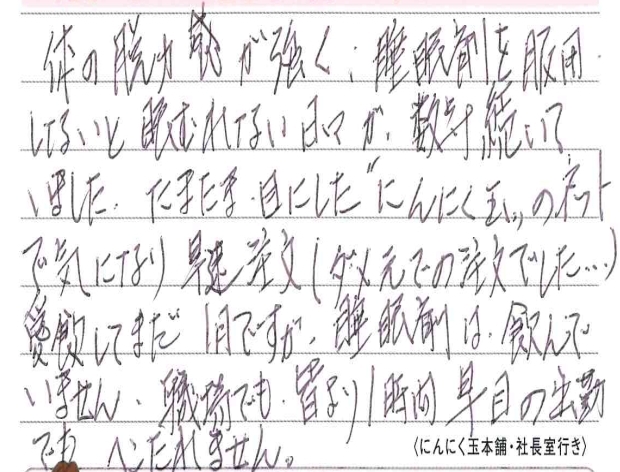 体の脱力感が強く、睡眠剤を服用
しないと眠むれない日々が、数年続いて
いました。たまたま、目にした"にんにく玉"のネット
で気になり早速注文(ダメ元での注文でした…)
愛飲してまだ1月ですが、睡眠剤は、飲んで
いません、職場でも、皆より1時間早目の出勤
でも へこたれません。
〈にんにく玉本舗・社長室行き〉